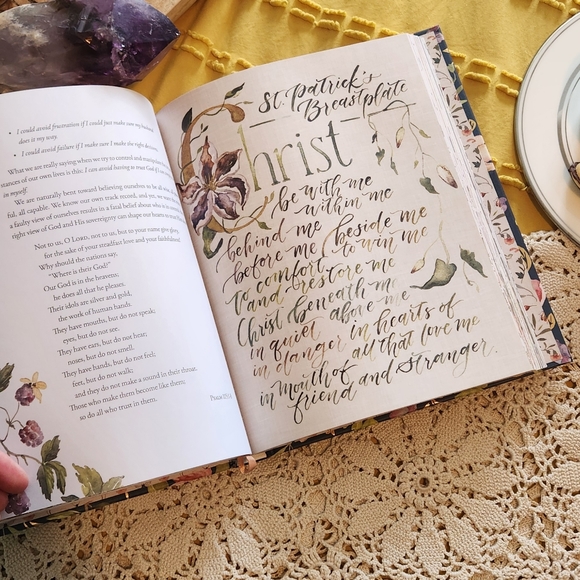 • I could avoid frustration if I could just make sure my husband
does it my way.
• I could avoid failure if I make sure I make the right
What we are really saying when we try to control and
stances of our own lives is this: I can avoid having to trust God if I
in myself.
We are naturally bent toward believing ourselves to be all
ful, all capable. We know our own track record, and yet, we
a faulty view of ourselves results in a fatal belief about who
right view of God and His sovereignty can shape our hearts to
Not to us, O LORD, not to us, but to your name give glory,
for the sake of your steadfast love and your faithfulness!
Why should the nations say,
"Where is their God?"
Our God is in the heavens;
he does all that he pleases.
Their idols are silver and gold,
the work of human hands.
They have mouths, but do not speak;
eyes, but do not see.
They have ears, but do not hear;
noses, but do not smell.
They have hands, but do not feel;
feet, but do not walk;
and they do not make a sound in their throat.
Those who make them become like them;
so do all who trust in them.
St. Patrick's
Breastplate
Christ
be with me
within me
behind me
before me beside me
to win me
to comfort
and restore me
Christ beneath me
above me
in quiet
in danger in hearts of
all that love me
in mouth of
friend and stranger.